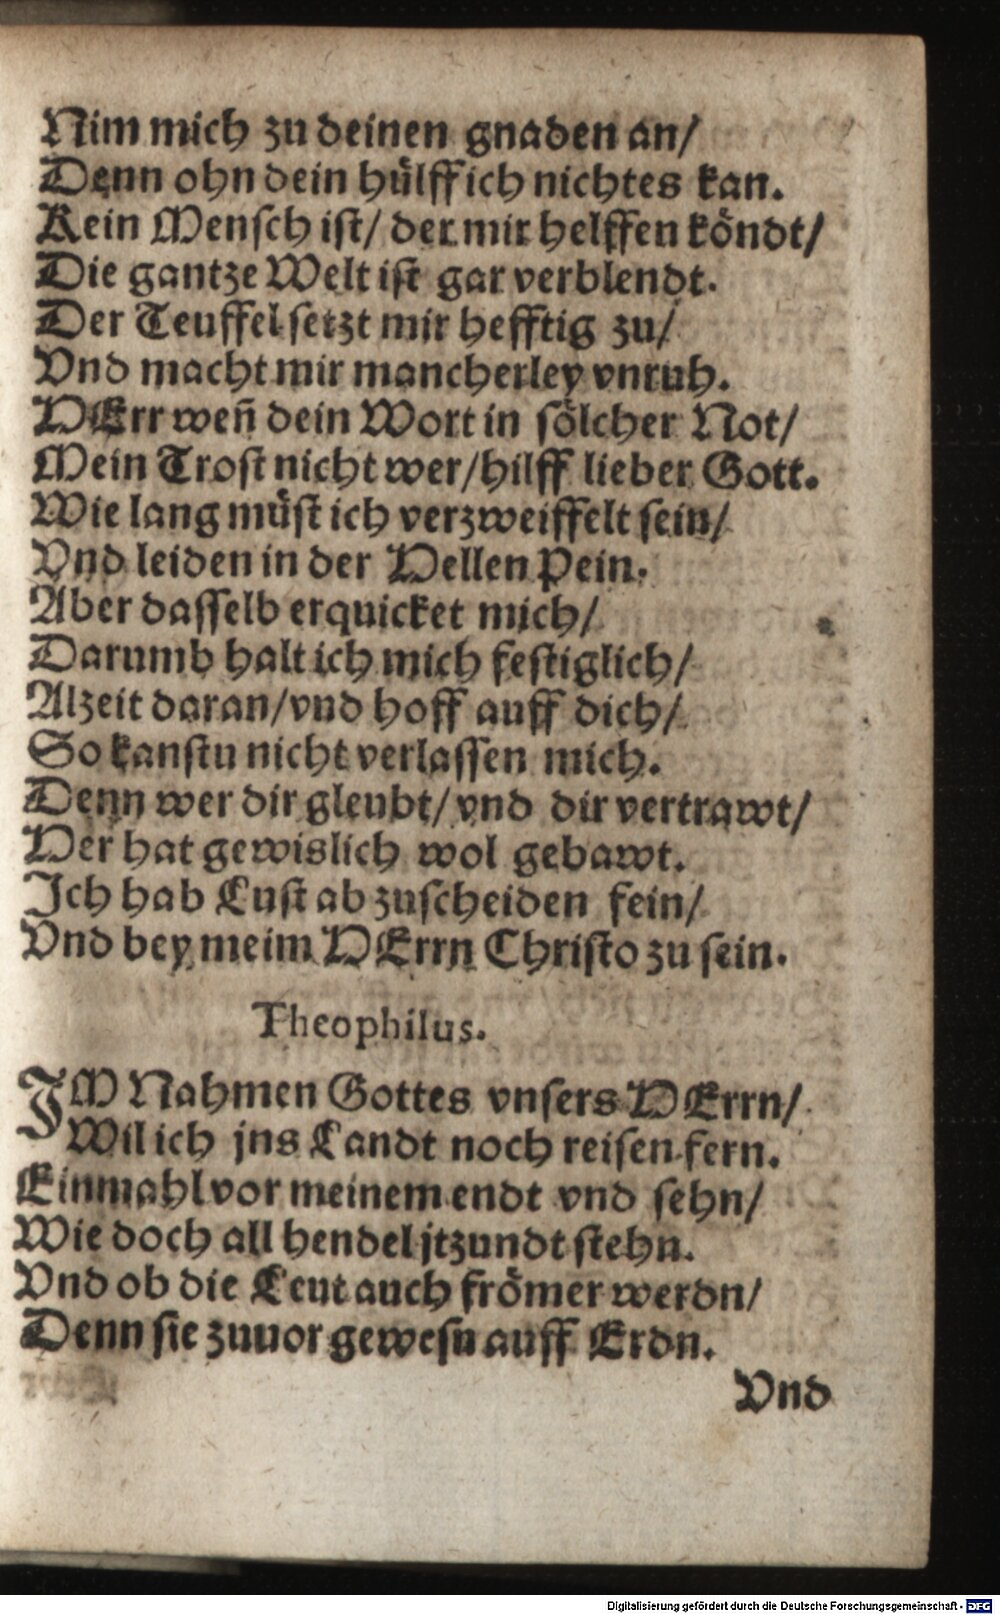 Nim mich zu deinen gnaden an/
Denn ohn dein hülff ich nichtes kan.
Kein Mensch ist/ der mir helffen köndt/
Die gantze Welt ist gar verblendt.
Der Teuffel setzt mir hefftig zu/
Vnd macht mir mancherley vnruh.
HErr weñ dein Wort in sölcher Not/
Mein Trost nicht wer/hilff lieber Gott.
Wie lang müst ich verzweiffelt sein/
Vnd leiden in der Hellen Pein.
Aber dasselb erquicket mich/
Darumb halt ich mich festiglich/
Alzeit daran/vnd hoff auff dich/
So kanstu nicht verlassen mich.
Denn wer dir gleubt/ vnd dir vertrawt/
Der hat gewislich wol gebawt.
Ich hab Lust ab zuscheiden fein/
Vnd bey meim HErrn Christo zu sein.
Theophilus.
IM Nahmen Gottes vnsers HErrn/
Wil ich jns Landt noch reisen fern.
Einmahl vor meinem endt vnd sehn/
Wie doch all hendel jtzundt stehn.
Vnd ob die Leut auch frömer werdn/
Denn sie zuuor gewesn auff Erdn.
Vnd
Digitalisierung gefördert durch die Deutsche Forschungsgemeinschaft - DFG